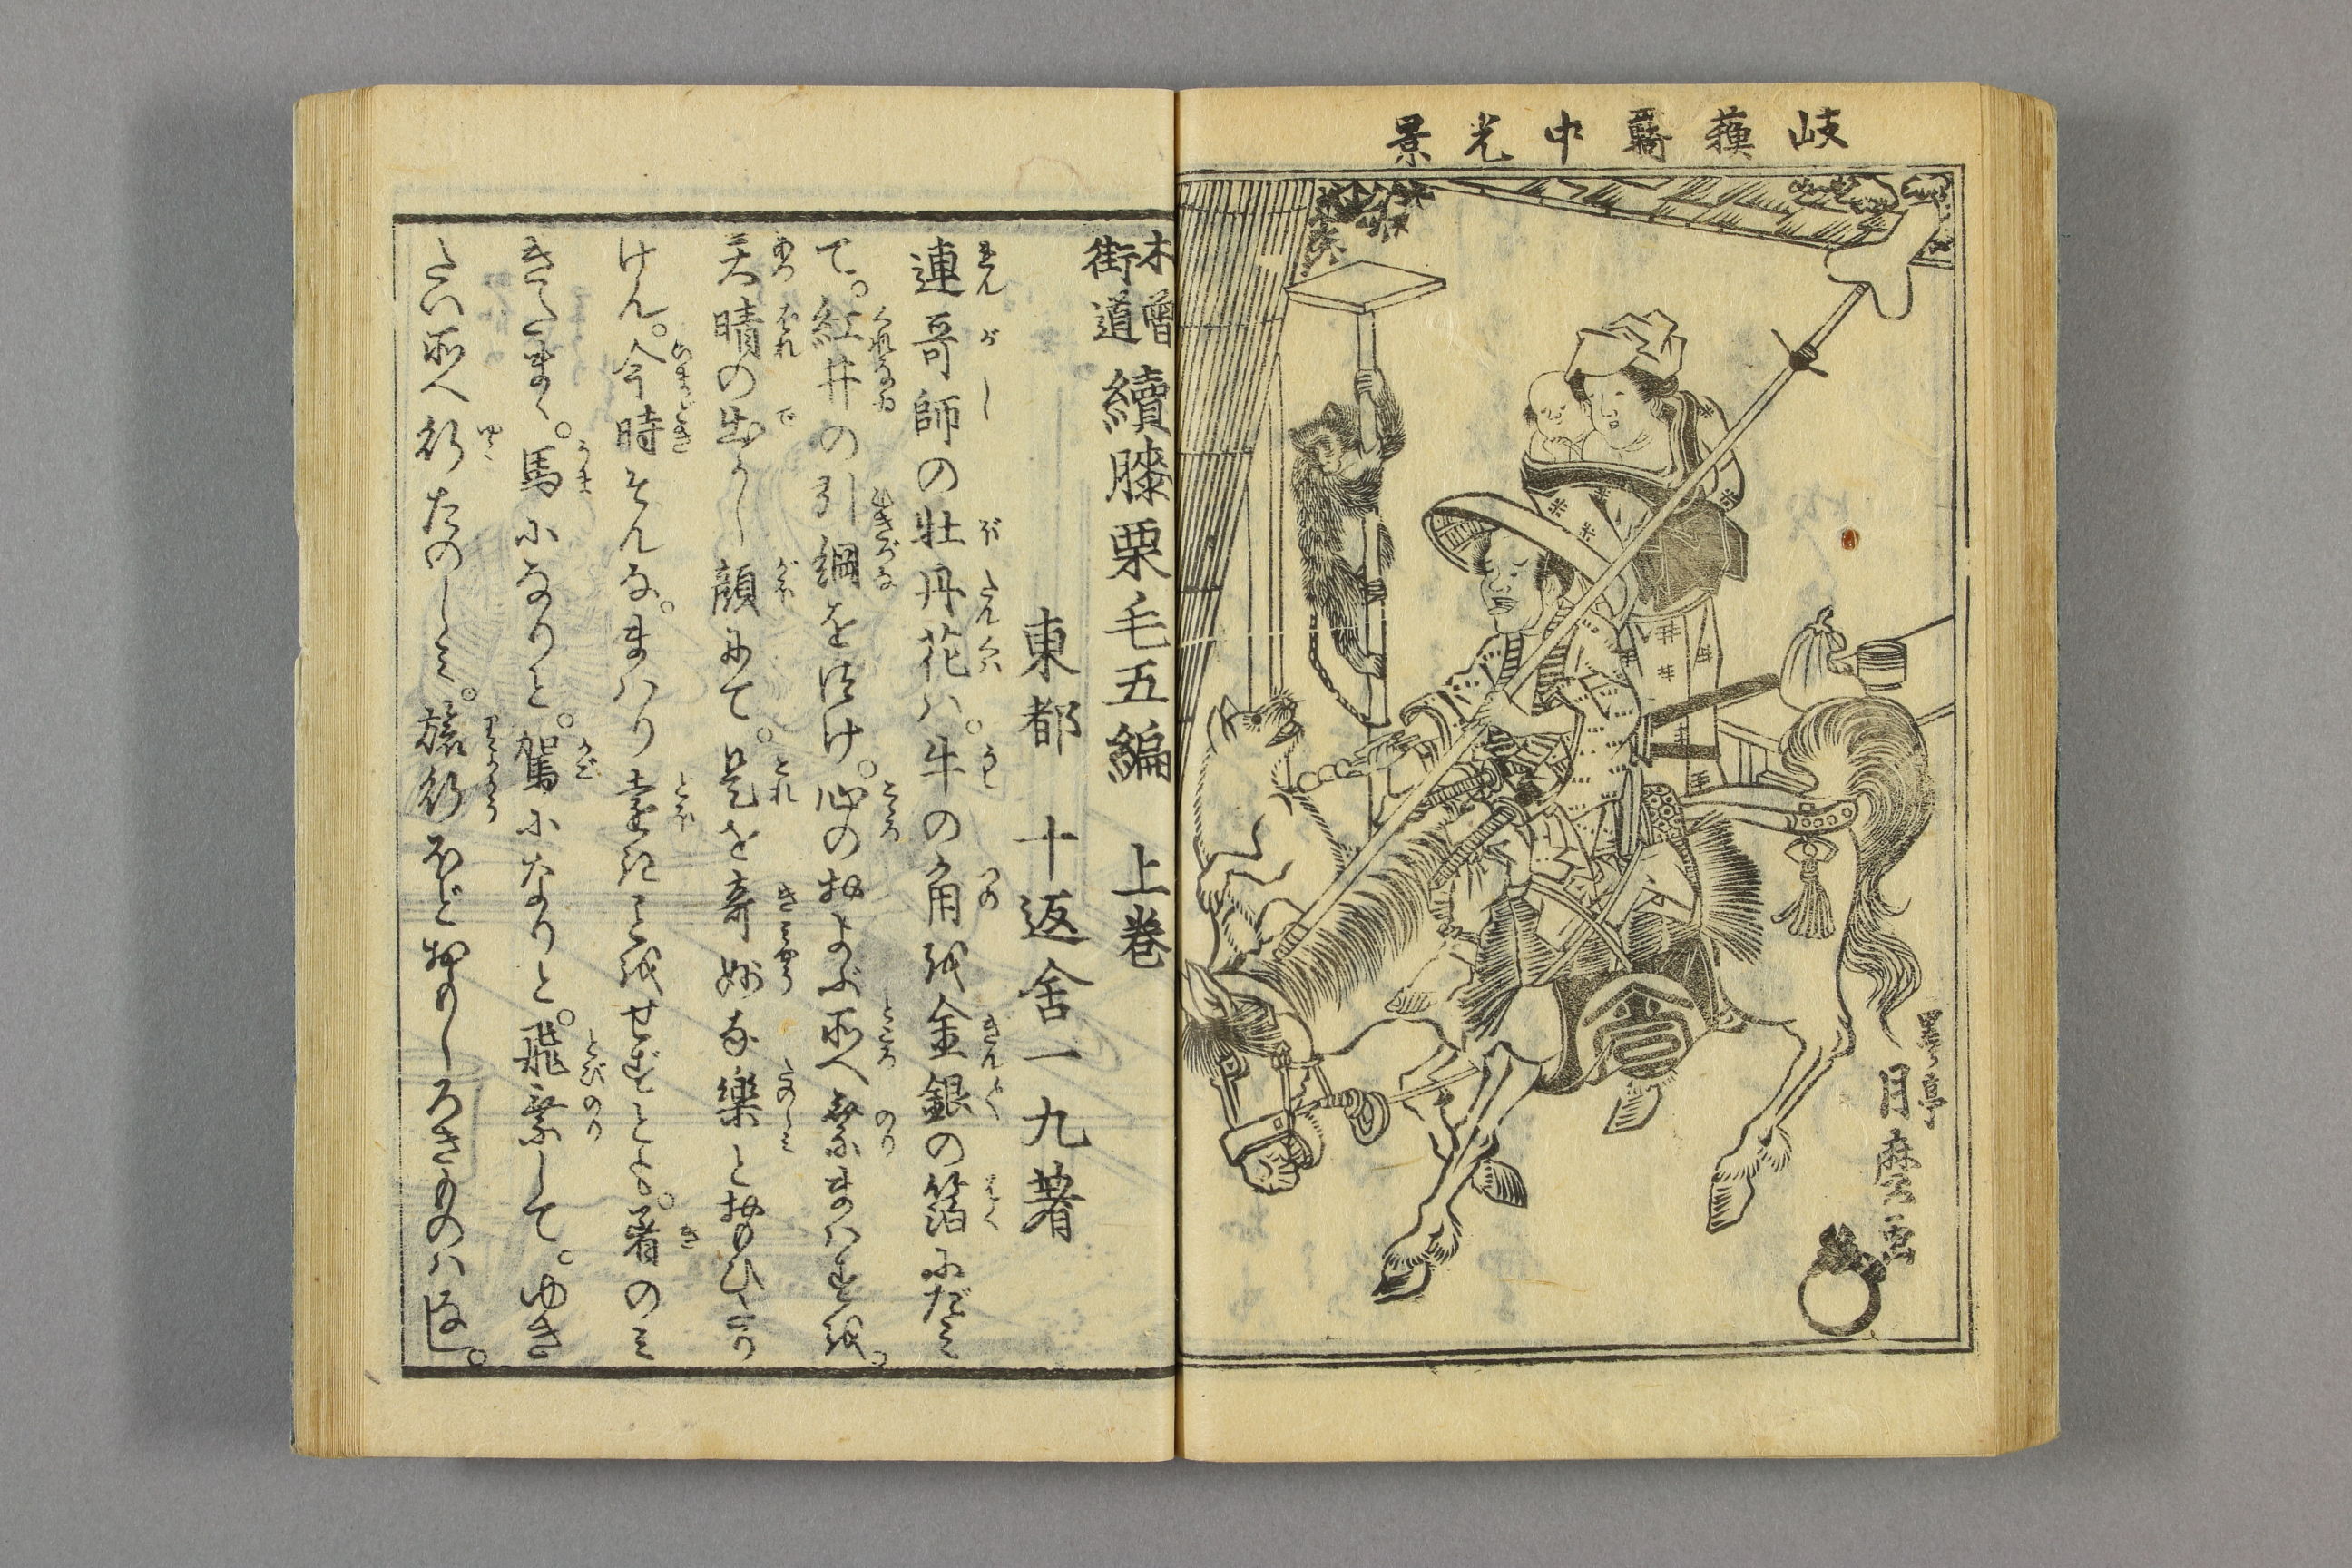 岐蘓覊中光景
墨亭
月麿画
木曽
街道
續膝栗毛五編 上巻
東都 十返舍一九著
連哥師の牡丹花ハ。牛の角を金銀の箔にだミ
て。紅井の引綱を付け。心のおよぶ所へ乗まハすを。
天晴の出かし顔にて。是を奇妙な樂とおもひたり
けん。今時そんな。まハり遠ることをせずとも。着のミ
きのまゝ。馬になりと。駕になりと。飛乗して。ゆき
たい所へ行たのしミ。旅行ほどおもしろきものハなし。